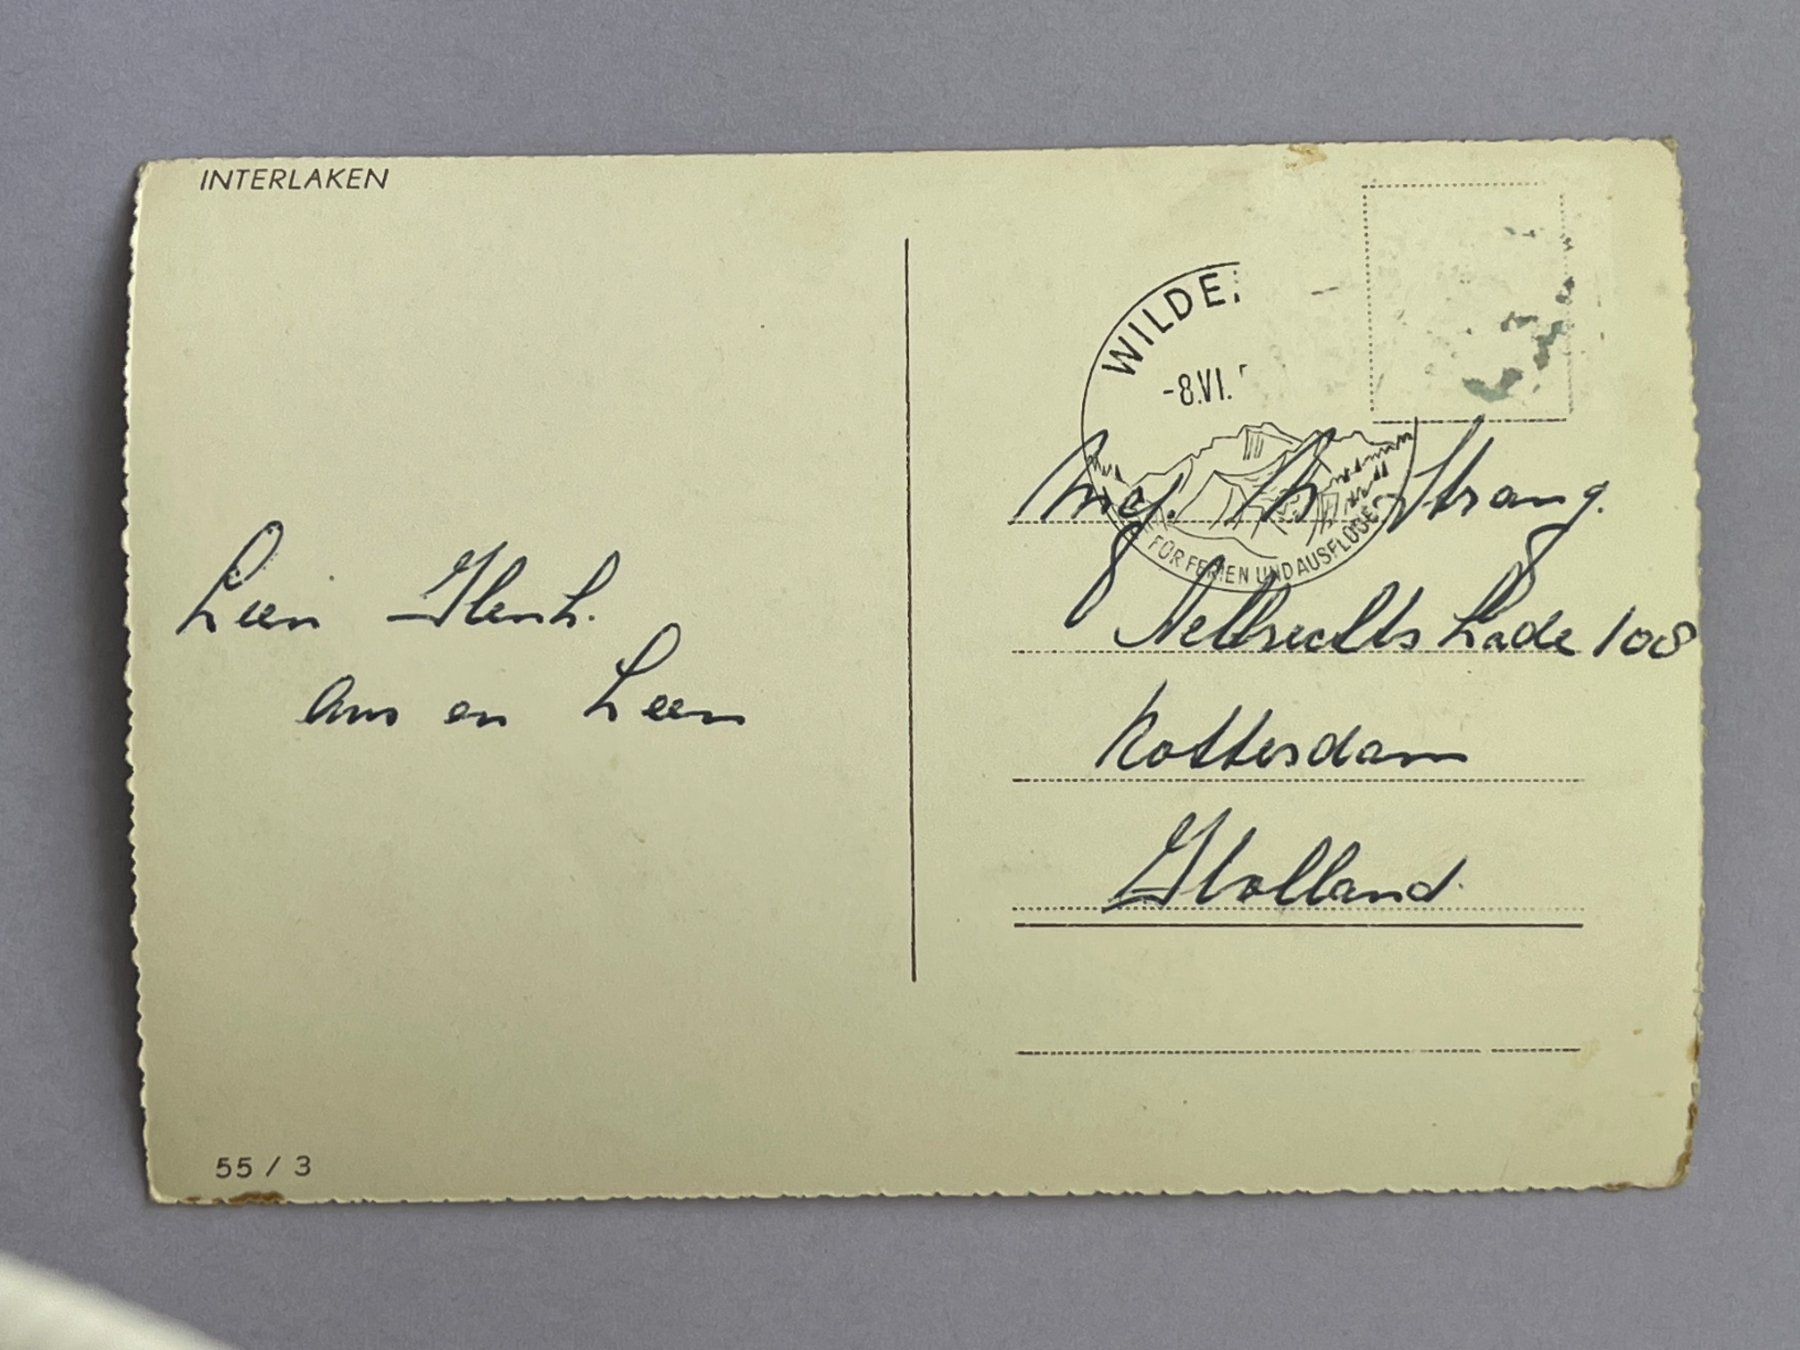 INTERLAKEN
WILDE
-8.VI.
FÜR FERIEN UND AUSFLÜGE
Strang.
Lade 108
Rotterdam
Holland.
Leen
en Leen
55 / 3